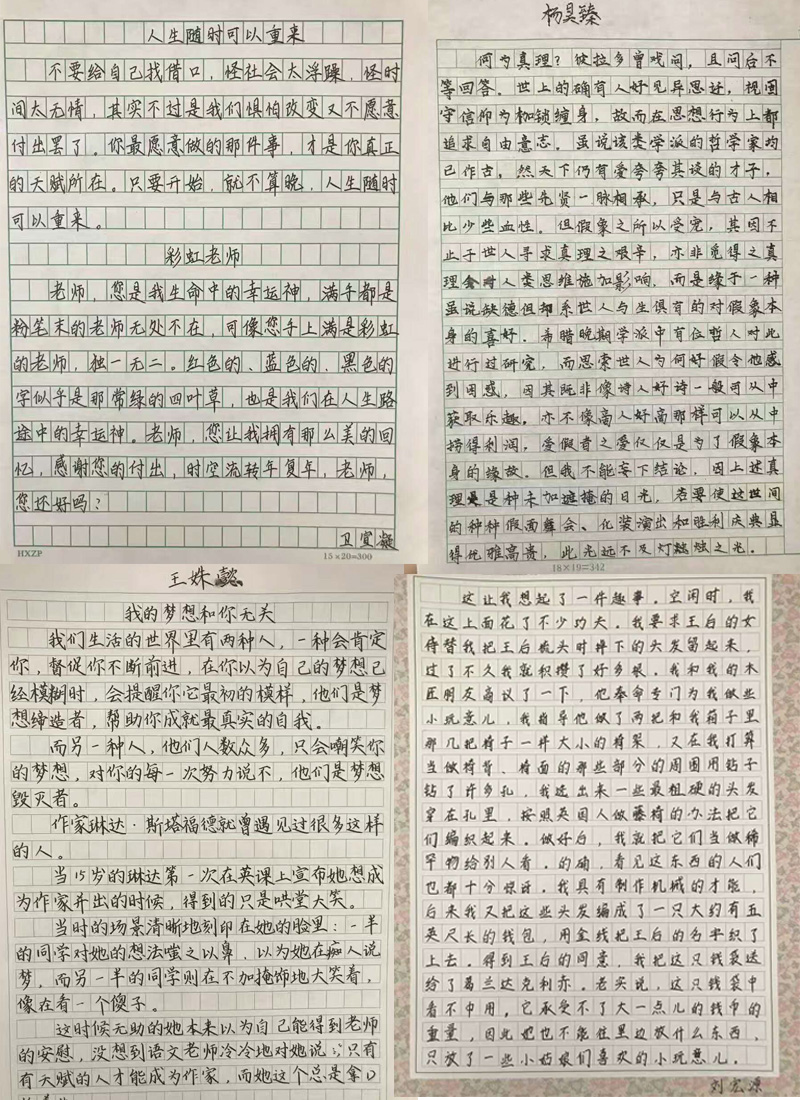 人生随时可以重来
不要给自己找借口，怪社会太浮躁，怪时
间太无情，其实不过是我们惧怕改变又不愿意
付出罢了。你最愿意做的那件事，才是你真正
的天赋所在。只要开始，就不算晚，人生随时
可以重来。
彩虹老师
老师，您是我生命中的幸运神，满手都是
粉笔末的老师无处不在，可像您手上满是彩虹
的老师，独一无二。红色的、蓝色的、黑色的
字似乎是那常绿的四叶草，也是我们在人生路
途中的幸运神。老师，您让我拥有那么美的回
忆，感谢您的付出，时空流转年复年，老师，
您还好吗？
卫宣凝
HXZP
15×20=300
杨昊臻
何为真理？彼拉多曾戏问，且问后不
等回答。世上的确有人好见异思迁，视固
守信仰为枷锁缠身，故而在思想行为上都
追求自由意志。虽说该类学派的哲学家均
已作古，然天下仍有爱夸夸其谈的才子，
他们与那些先贤一脉相承，只是与古人相
比少些血性。但假象之所以受宠，其因不
止于世人寻求真理之艰辛，亦非觅得之真
理会对人类思维施加影响，而是缘于一种
虽说缺德但却系世人与生俱有的对假象本
身的喜好。希腊晚期学派中有位哲人对此
进行过研究，而思索世人为何好假令他感
到困惑，因其既非像诗人好诗一般可从中
获取乐趣，亦不像商人好商那样可以从中
捞得利润，爱假者之爱仅仅是为了假象本
身的缘故。但我不能妄下结论，因上述真
理是种未加遮掩的日光，若要使这世间
的种种假面舞会、化装演出和胜利庆典显
得优雅高贵，此光远不及灯烛之光。
18×19=342
王姝懿
我的梦想和你无关
我们生活的世界里有两种人，一种会肯定
你，督促你不断前进，在你以为自己的梦想已
经模糊时，会提醒你它最初的模样，他们是梦
想缔造者，帮助你成就最真实的自我。
而另一种人，他们人数众多，只会嘲笑你
的梦想，对你的每一次努力说不，他们是梦想
毁灭者。
作家琳达·斯塔福德就曾遇见过很多这样
的人。
当15岁的琳达第一次在英课上宣布她想成
为作家并出的时候，得到的只是哄堂大笑。
当时的场景清晰地刻印在她的脸里：一半
的同学对她的想法嗤之以鼻，以为她在痴人说
梦，而另一半的同学则在不加掩饰地大笑着，
像在看一个傻子。
这时候无助的她本来以为自己能得到老师
的安慰，没想到语文老师冷冷地对她说：只有
有天赋的人才能成为作家，而她这个总是拿D
这让我想起了一件趣事。空闲时，我
在这上面花了不少功夫。我要求王后的女
侍替我把王后梳头时掉下的头发留起来，
过了不久我就积攒了好多根。我和我的木
匠朋友商议了一下，他奉命专门为我做些
小玩意儿，我指导他做了两把和我箱子里
那几把椅子一样大小的椅架，又在我打算
当做椅背、椅面的那些部分的周围用钻子
钻了许多孔，我选出来一些最粗硬的头发
穿在孔里，按照英国人做藤椅的办法把它
们编织起来。做好后，我就把它们当做稀
罕物给别人看。的确，看见这东西的人们
也都十分惊讶。我具有制作机械的才能，
后来我又把这些头发编成了一只大约有五
英尺长的钱包，用金线把王后的名字织了
上去。得到王后的同意，我把这只钱袋送
给了葛兰达克利赤。老实说，这只钱袋中
看不中用，它承受不了大一点儿的钱币的
重量，因此她也不能往里边放什么东西，
只放了一些小姑娘们喜欢的小玩意儿。
刘宏源